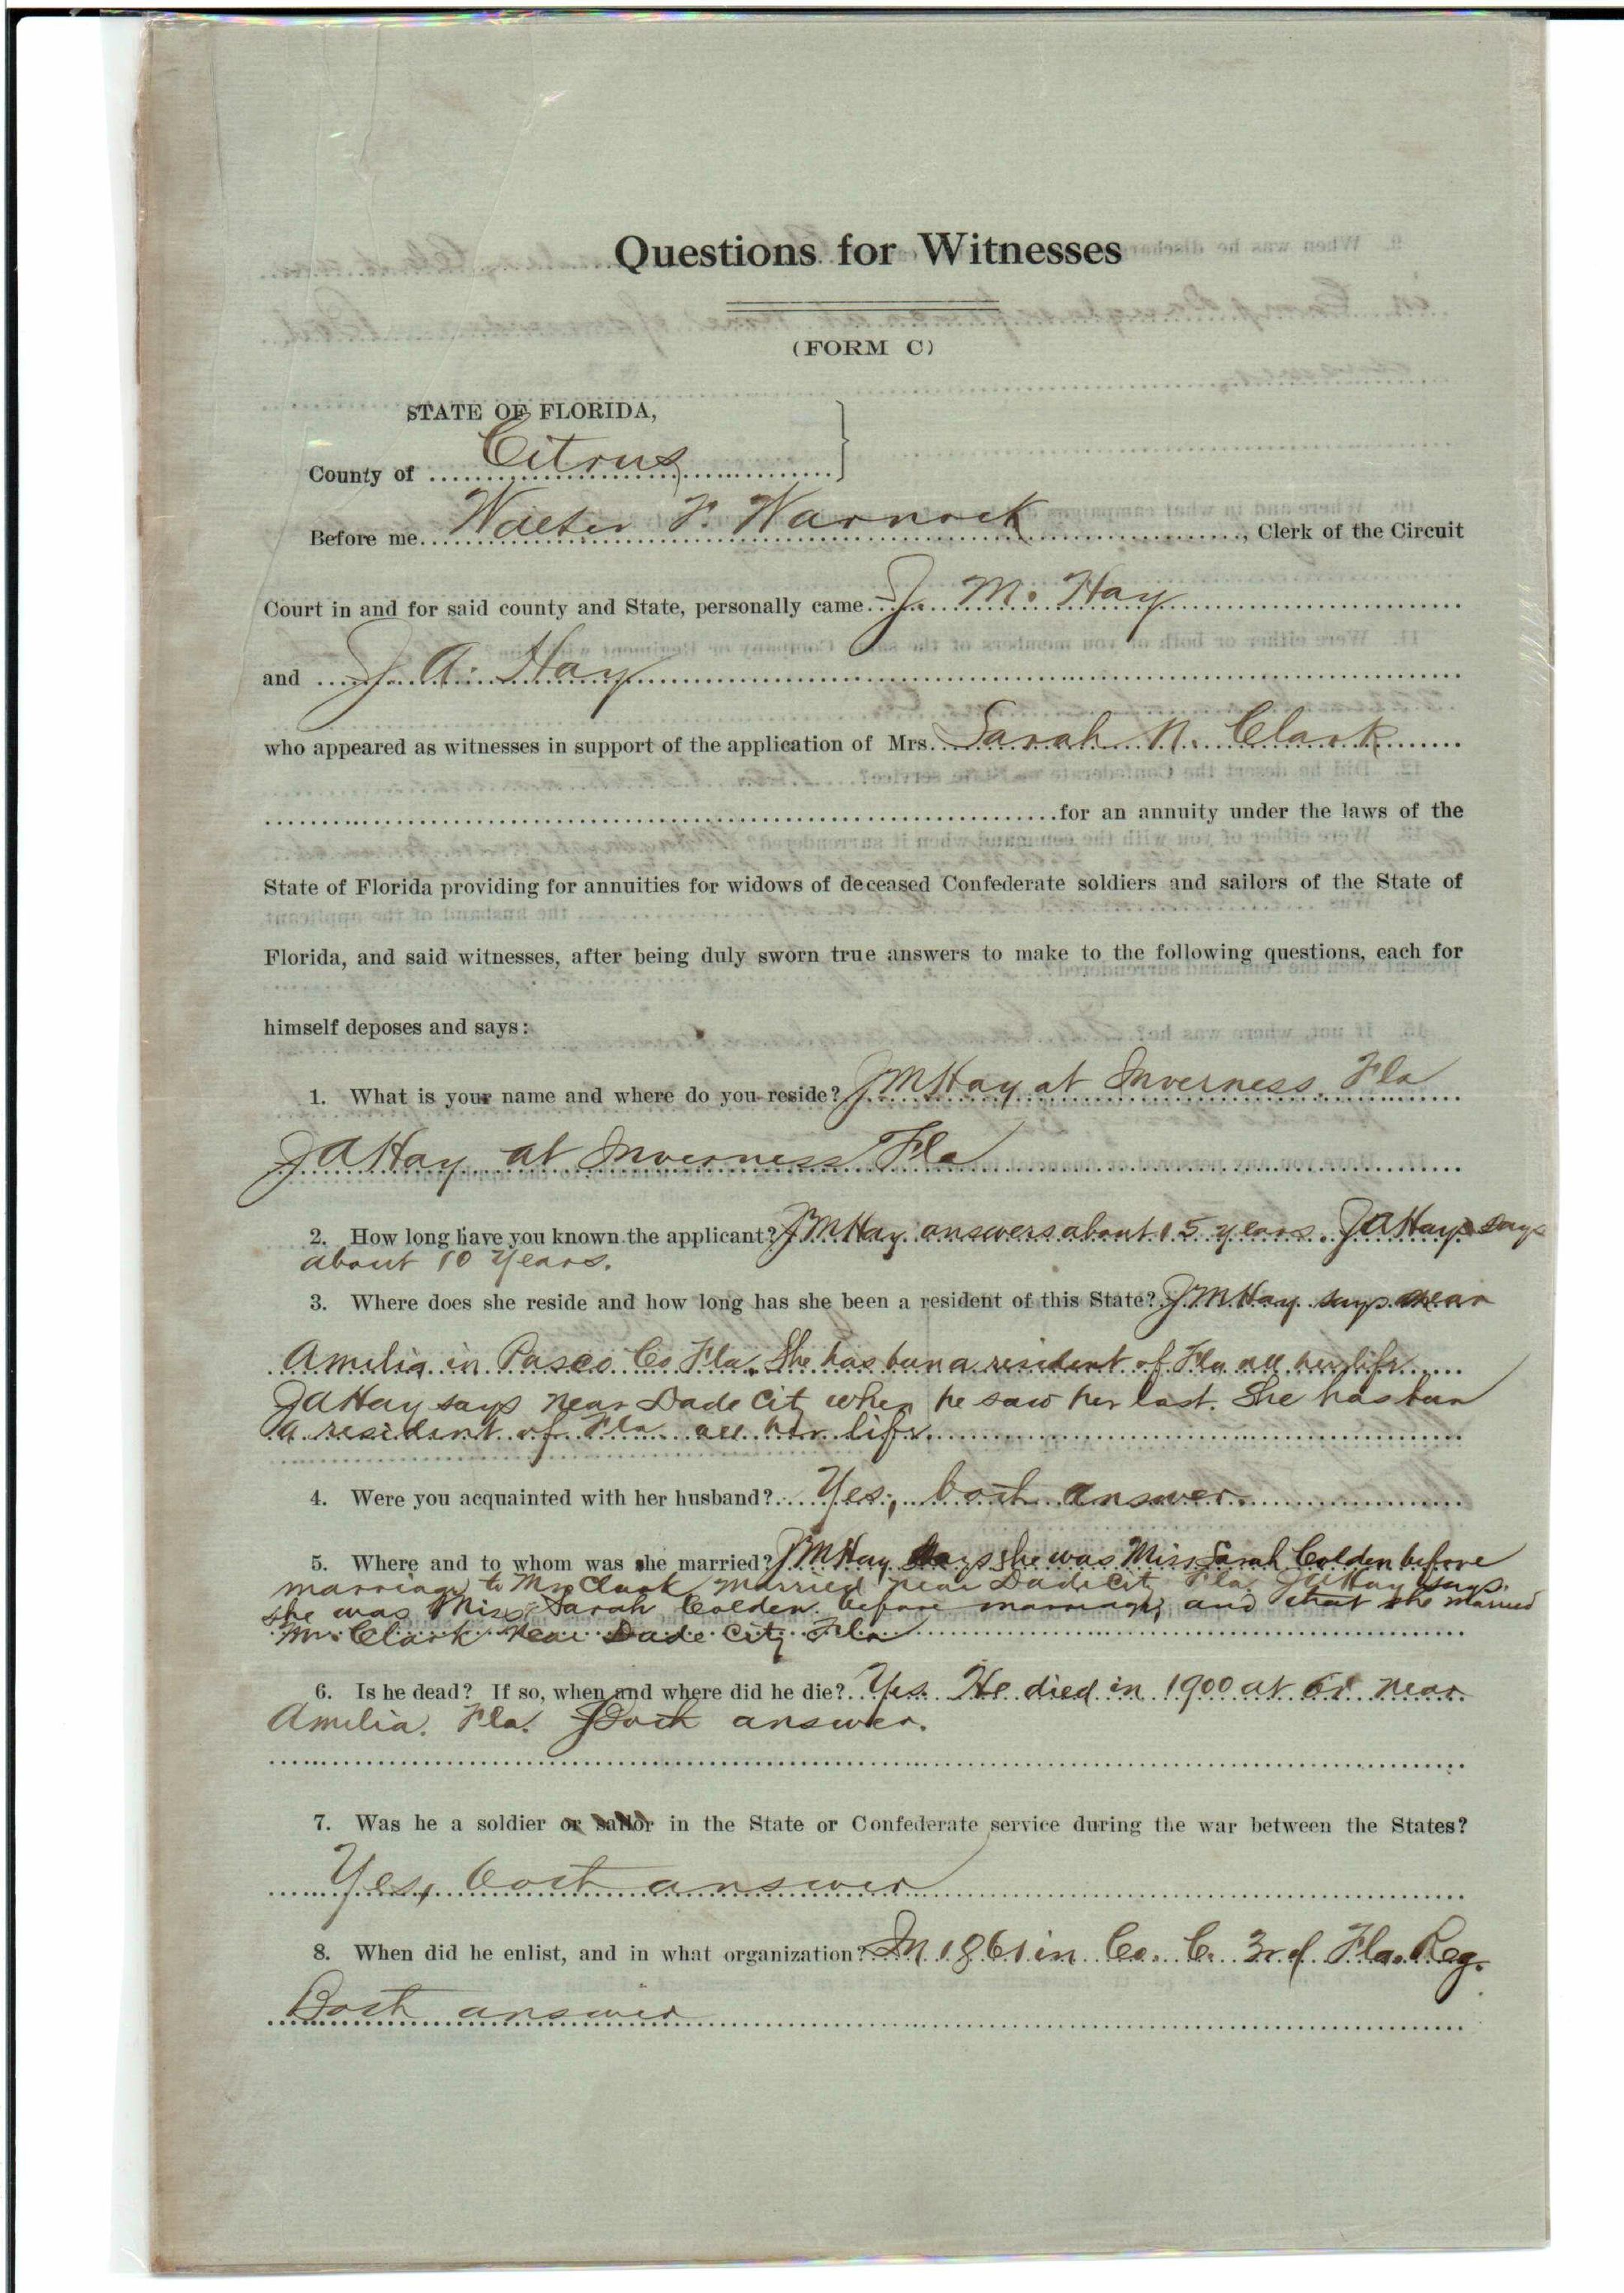 Questions for Witnesses
(FORM C)
STATE OF FLORIDA,
County of Citrus
Before me Walter F. Warnock, Clerk of the Circuit
Court in and for said county and State, personally came J. M. Hay
and J. A. Hay
who appeared as witnesses in support of the application of Mrs. Sarah N. Clark
for an annuity under the laws of the
State of Florida providing for annuities for widows of deceased Confederate soldiers and sailors of the State of
Florida, and said witnesses, after being duly sworn true answers to make to the following questions, each for
himself deposes and says:
1. What is your name and where do you reside? J M Hay at Inverness, Fla
J A Hay at Inverness Fla
2. How long have you known the applicant? J M Hay answers about 15 years. J A Hay says
about 10 years.
3. Where does she reside and how long has she been a resident of this State? J M Hay says near
Amelia in Pasco Co Fla. She has been a resident of Fla all her life
J A Hay says near Dade City when he saw her last. She has been
a resident of Fla all her life.
4. Were you acquainted with her husband? Yes, both answer.
5. Where and to whom was she married? J M Hay says she was Miss Sarah Colden before
marriage to Mr Clark married near Dade City Fla. J A Hay says
she was Miss Sarah Colden before marriage, and that she married
Mr. Clark near Dade City Fla
6. Is he dead? If so, when and where did he die? Yes. He died in 1900 at or near
Amelia. Fla. Both answer.
7. Was he a soldier or sailor in the State or Confederate service during the war between the States?
Yes, both answer
8. When did he enlist, and in what organization? In 1861 in Co. C. 3rd Fla. Reg.
Both answer